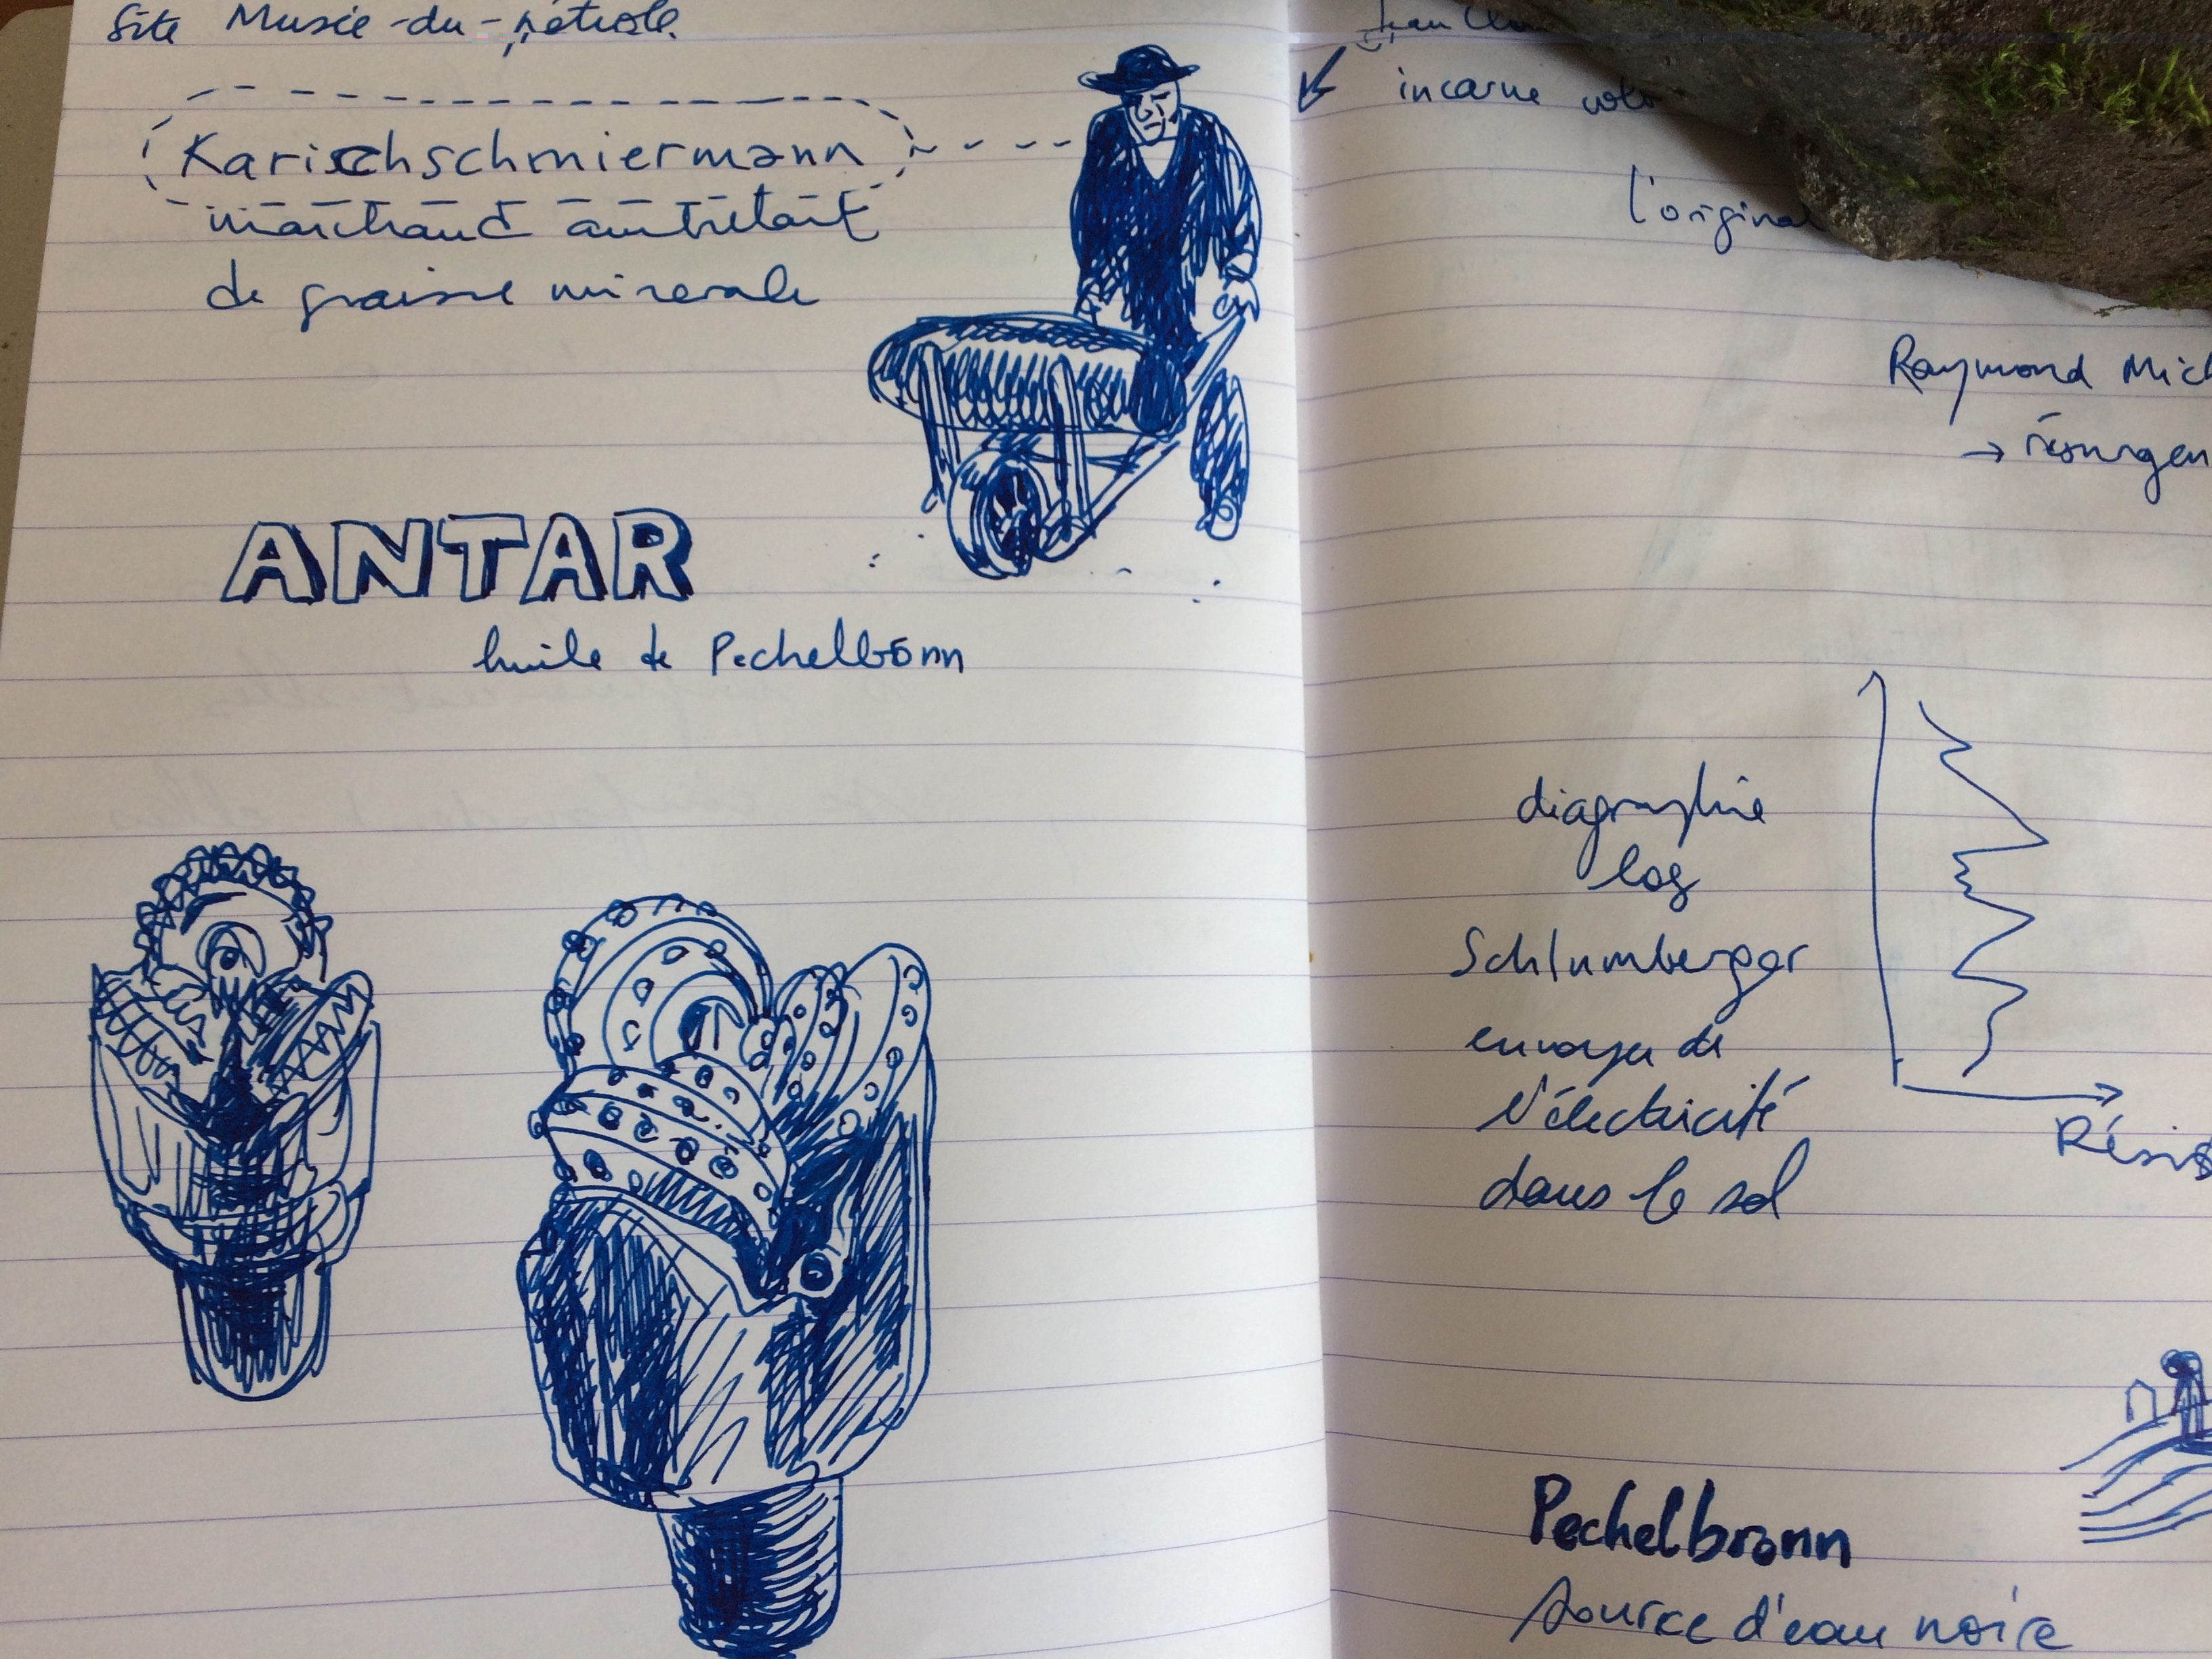 Site Musée-du-pétrole.
Karischschmiermann
marchand
de graisse minerale
ANTAR
huile de Pechelbronn
incarne
l'original
Raymond Mich
→ résurgen
diagraphie
log
Schlumberger
envoyer de
l'électricité
dans le sol
Résis
Pechelbronn
source d'eau noire